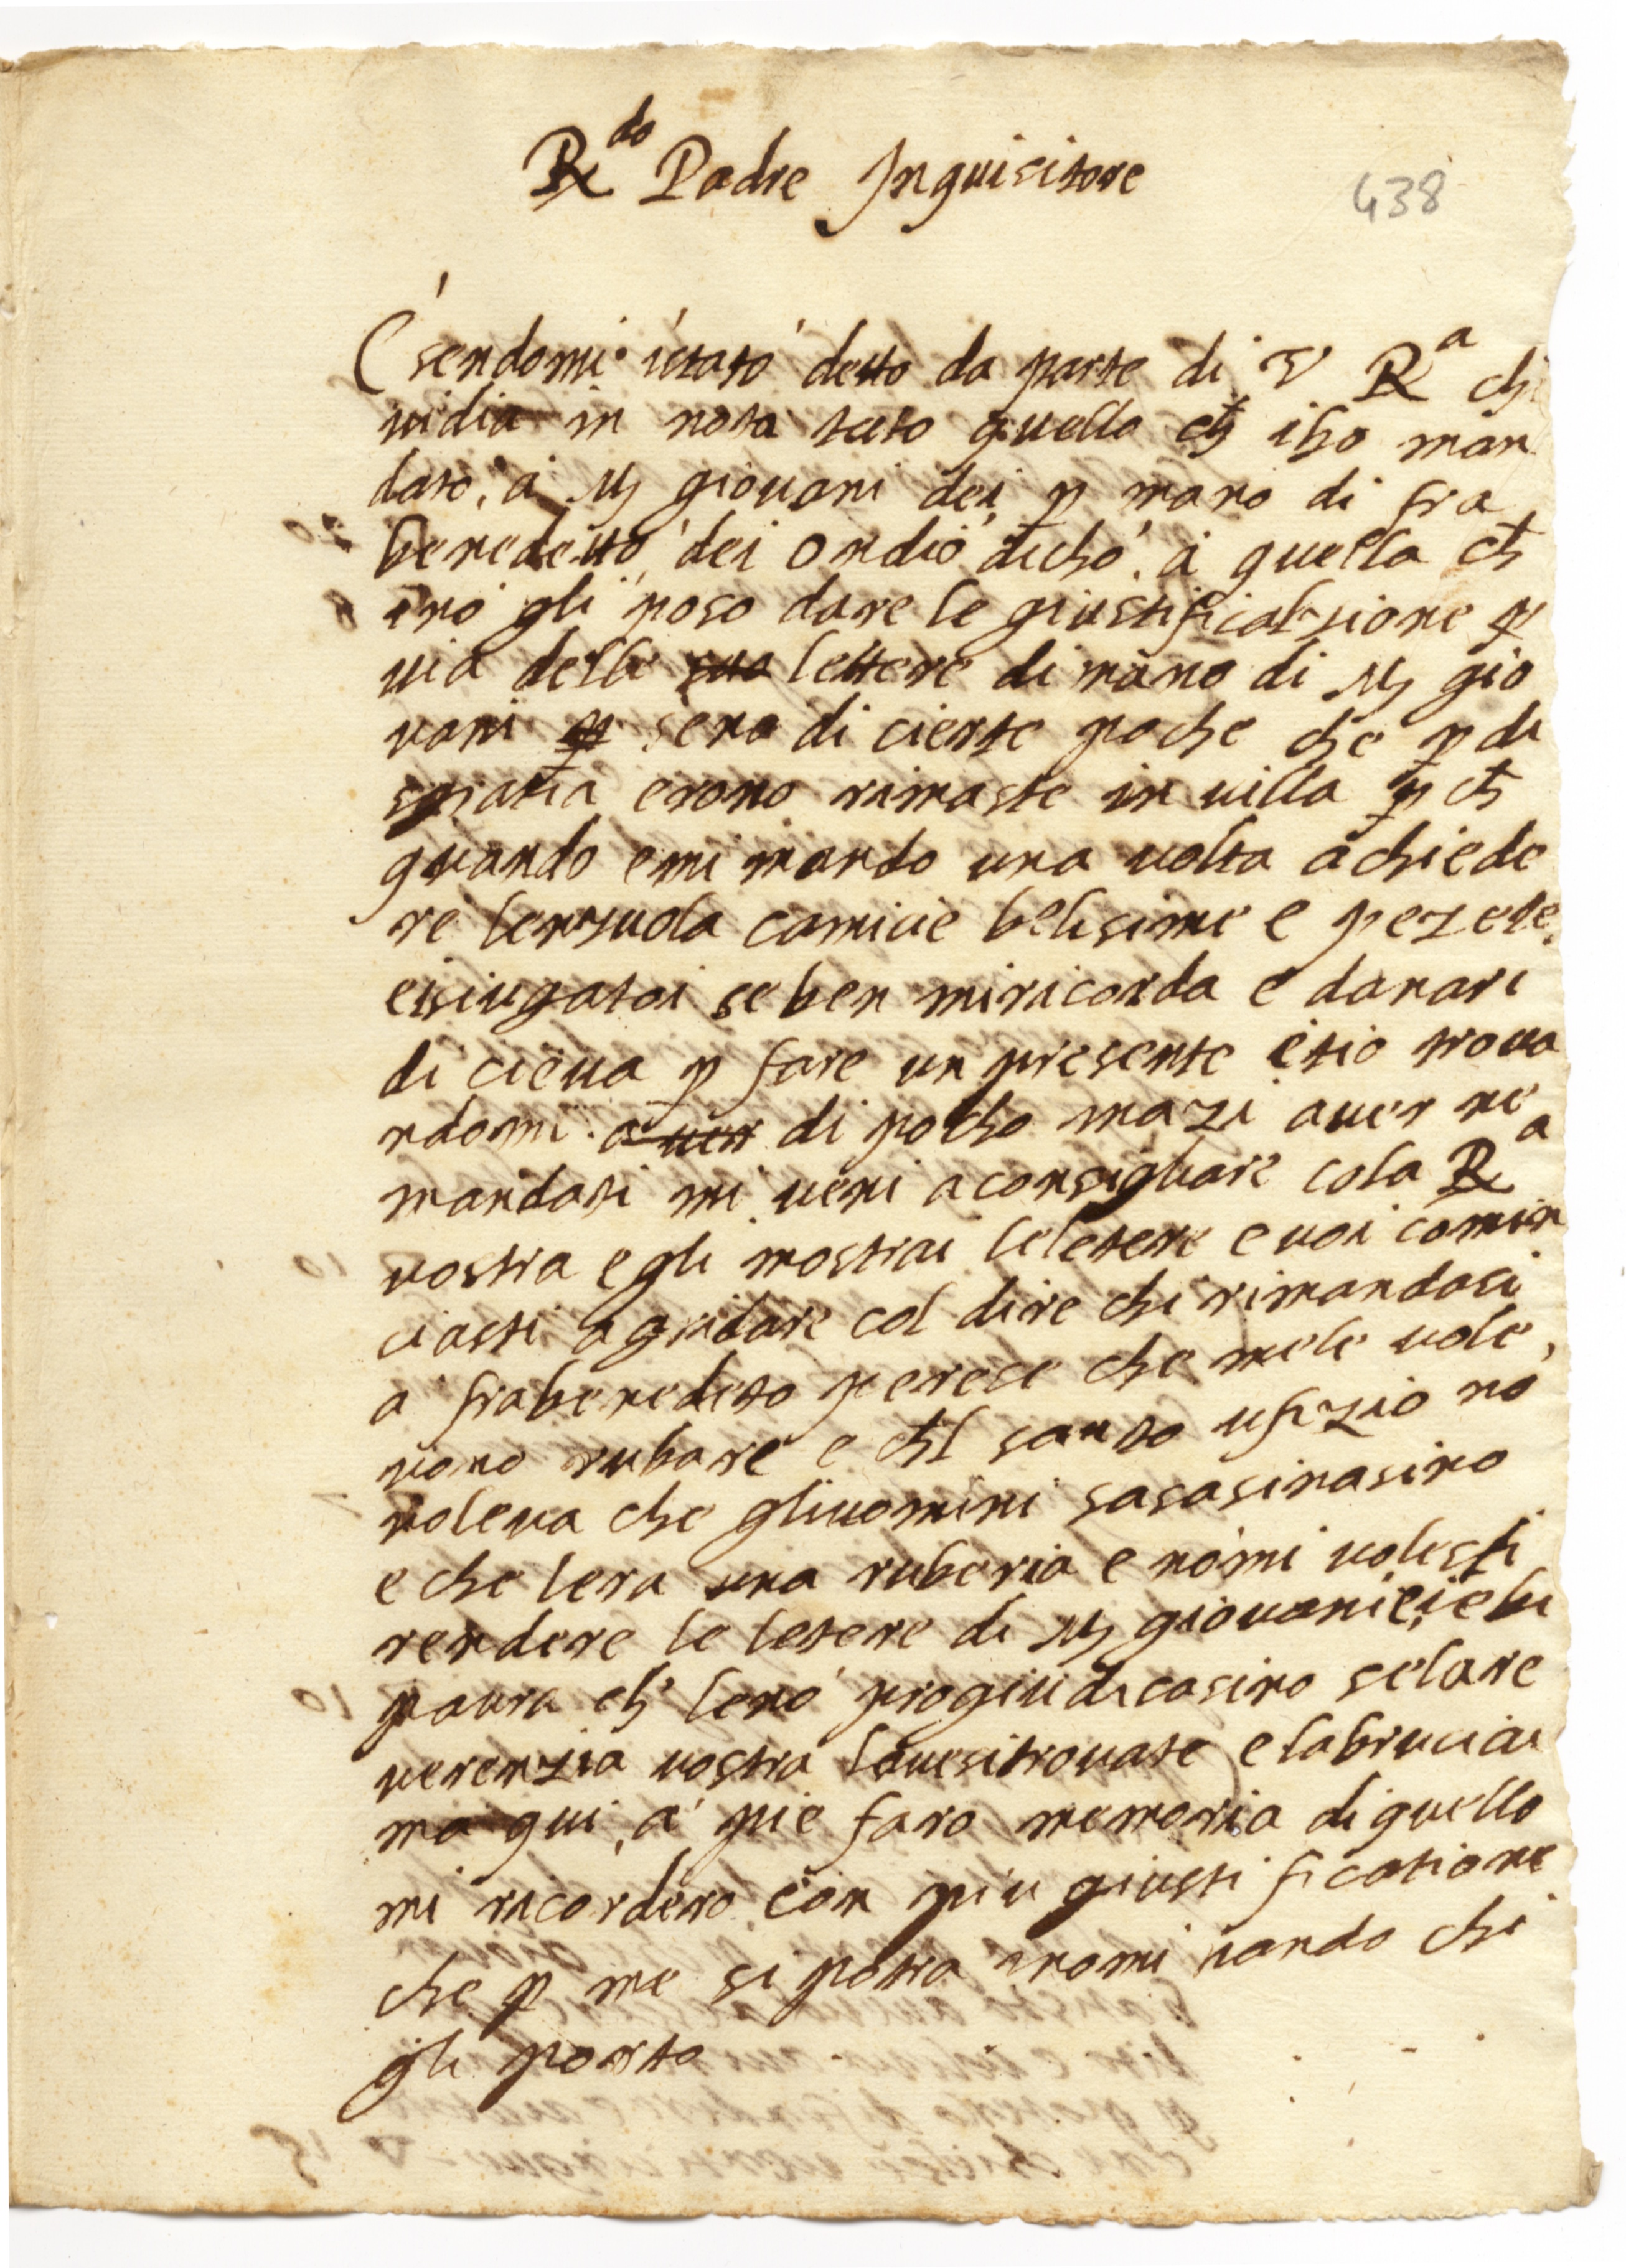 Rdo Padre Inquisitore
438
Esendomi istato detto da parte di V Ra ch
vi dia in nota tuto quello ch iho man
dato, a M giovani dei p mano di fra
benedetto dei ondio dicho a quella ch
ero gli poso dare le giustificatione p
via delle sue lettere di mano di M gio
vani sera di ciente poche che p di
sgratia erono rimaste in villa p ch
quando e mi mando una volta a chiede
re lenzuola camicie belisime e pezete
e isiugatoi se ben mi ricorda e danari
di cieva p fare un presente e tio trova
ndomi aver di pocho mazi aver ne
mandati mi veni a consigliare cola Ra
vostra e gli mostrai le letere e voi comin
ciasti a gridare col dire chi rimandasi
a fra benedeto perese che mele vole
vono rubare e chl santo ufizio no
voleva che gli uomini sasasinasino
e che lera una ruberia e nomi volesti
rendere le letere di M giovani e iebi
paura ch leno progiudicasino se la re
verenzia vostra lavesi trovate e la bruciai
ma qui, a pie faro memoria di quello
mi ricordero con piu giustificatione
che p me si potra nominando chi
gli porto